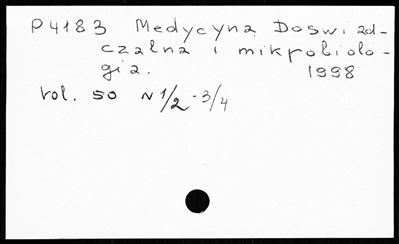 P4183 Medycyna Doswiad-
czalna i mikrobiolo-
gia. 1998
vol. 50 N 1/2 - 3/4